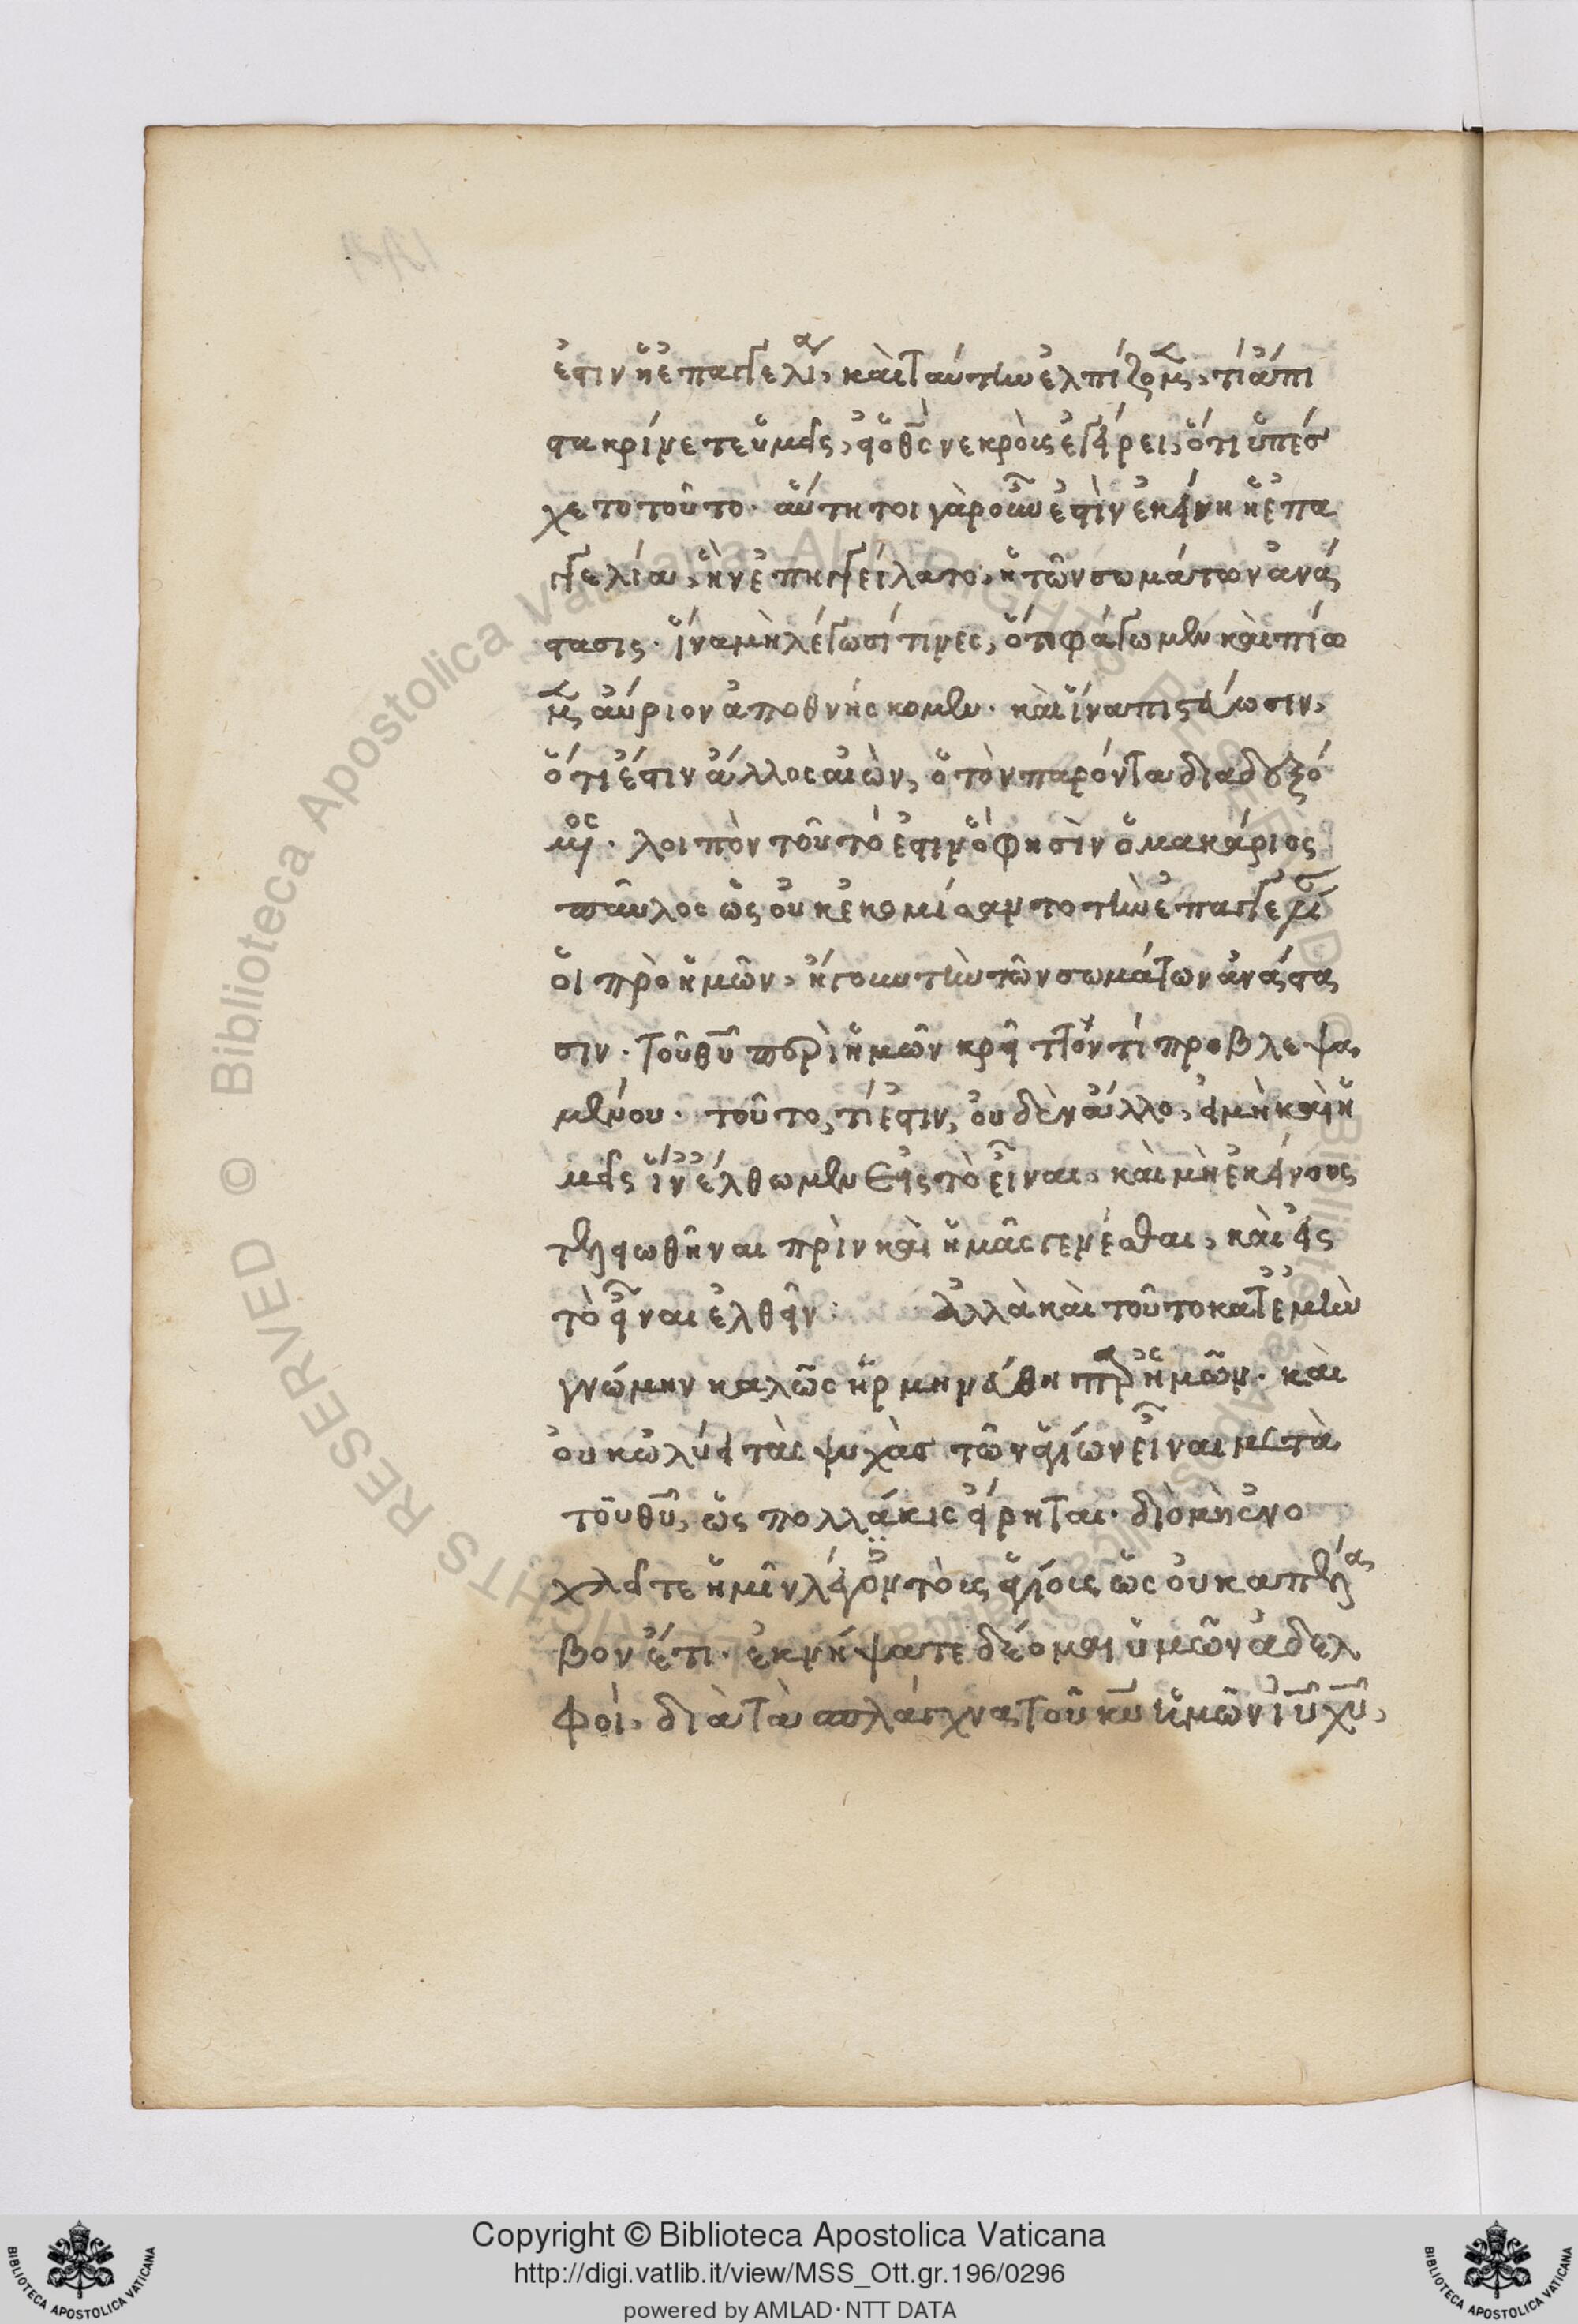 ἐστιν ἡ ἐπαγγελία, καὶ ταύτην ἐλπίζομεν, τί ἄπι
στα κρίνετε ὑμεῖς, εἰ ὁ θς νεκροὺς ἐγείρει, ὅτι ὑπέσ
χετο τοῦτο. αὕτη τοιγαροῦν ἐστὶν ἐκείνη ἡ ἐπα
γγελία, ἣν ἐπηγγείλατο, ἡ τῶν σωμάτων ἀνά
στασις. ἵνα μὴ λέγωσί τινες, ὅτι φάγωμεν καὶ πίω
μεν, αὔριον ἀποθνήσκομεν. καὶ ἵνα πιστεύωσιν,
ὅτι ἔστιν ἄλλος αἰὼν, ὁ τὸν παρόντα διαδεξό
μενος. λοιπὸν τοῦτό ἐστιν ὅ φησὶν ὁ μακάριος
παῦλος ὡς οὐκ ἐκομίσαντο τὴν ἐπαγγελίαν
οἱ πρὸ ἡμῶν, ἤγουν τὴν τῶν σωμάτων ἀνάστα
σιν. τοῦ θυ περὶ ἡμῶν κρεῖττόν τι προβλεψα
μένου. τοῦτο, τί ἐστιν, οὐδὲν ἄλλο, εἰ μὴ καὶ ἡ
μεῖς ἵν' ἔλθωμεν εἰς τὸ εἶναι, καὶ μὴ ἐκείνους
τελειωθῆναι πρὶν καὶ ἡμᾶς γενέσθαι, καὶ εἰς
τὸ εἶναι ἐλθεῖν: ἀλλὰ καὶ τοῦτο κατ' ἐμὴν
γνώμην καλῶς ἡρμηνεύθη παρ' ἡμῶν. καὶ
οὐ κωλύει τὰς ψυχὰς τῶν ἁγίων εἶναι μετὰ
τοῦ θυ, ὡς πολλάκις εἴρηται. διὸ μὴ ἐνο
χλεῖτε ἡμῖν λέγοντες τοῖς ἁγίοις ὡς οὐκ ἀπέλα
βον ἔτι. ἐκνήψατε δέομαι ὑμῶν ἀδελ
φοὶ, διὰ τὰ σπλάγχνα τοῦ κυ ἡμῶν ιυ χυ,
Copyright © Biblioteca Apostolica Vaticana
http://digi.vatlib.it/view/MSS_Ott.gr.196/0296
powered by AMLAD·NTT DATA